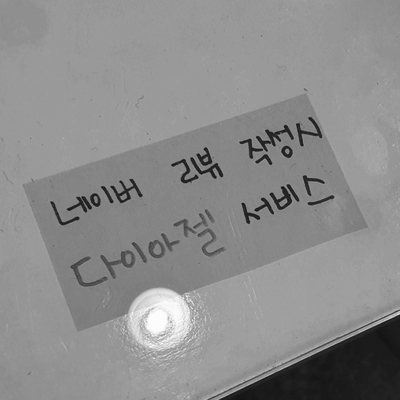 네이버 리뷰 작성시
다이아젤 서비스